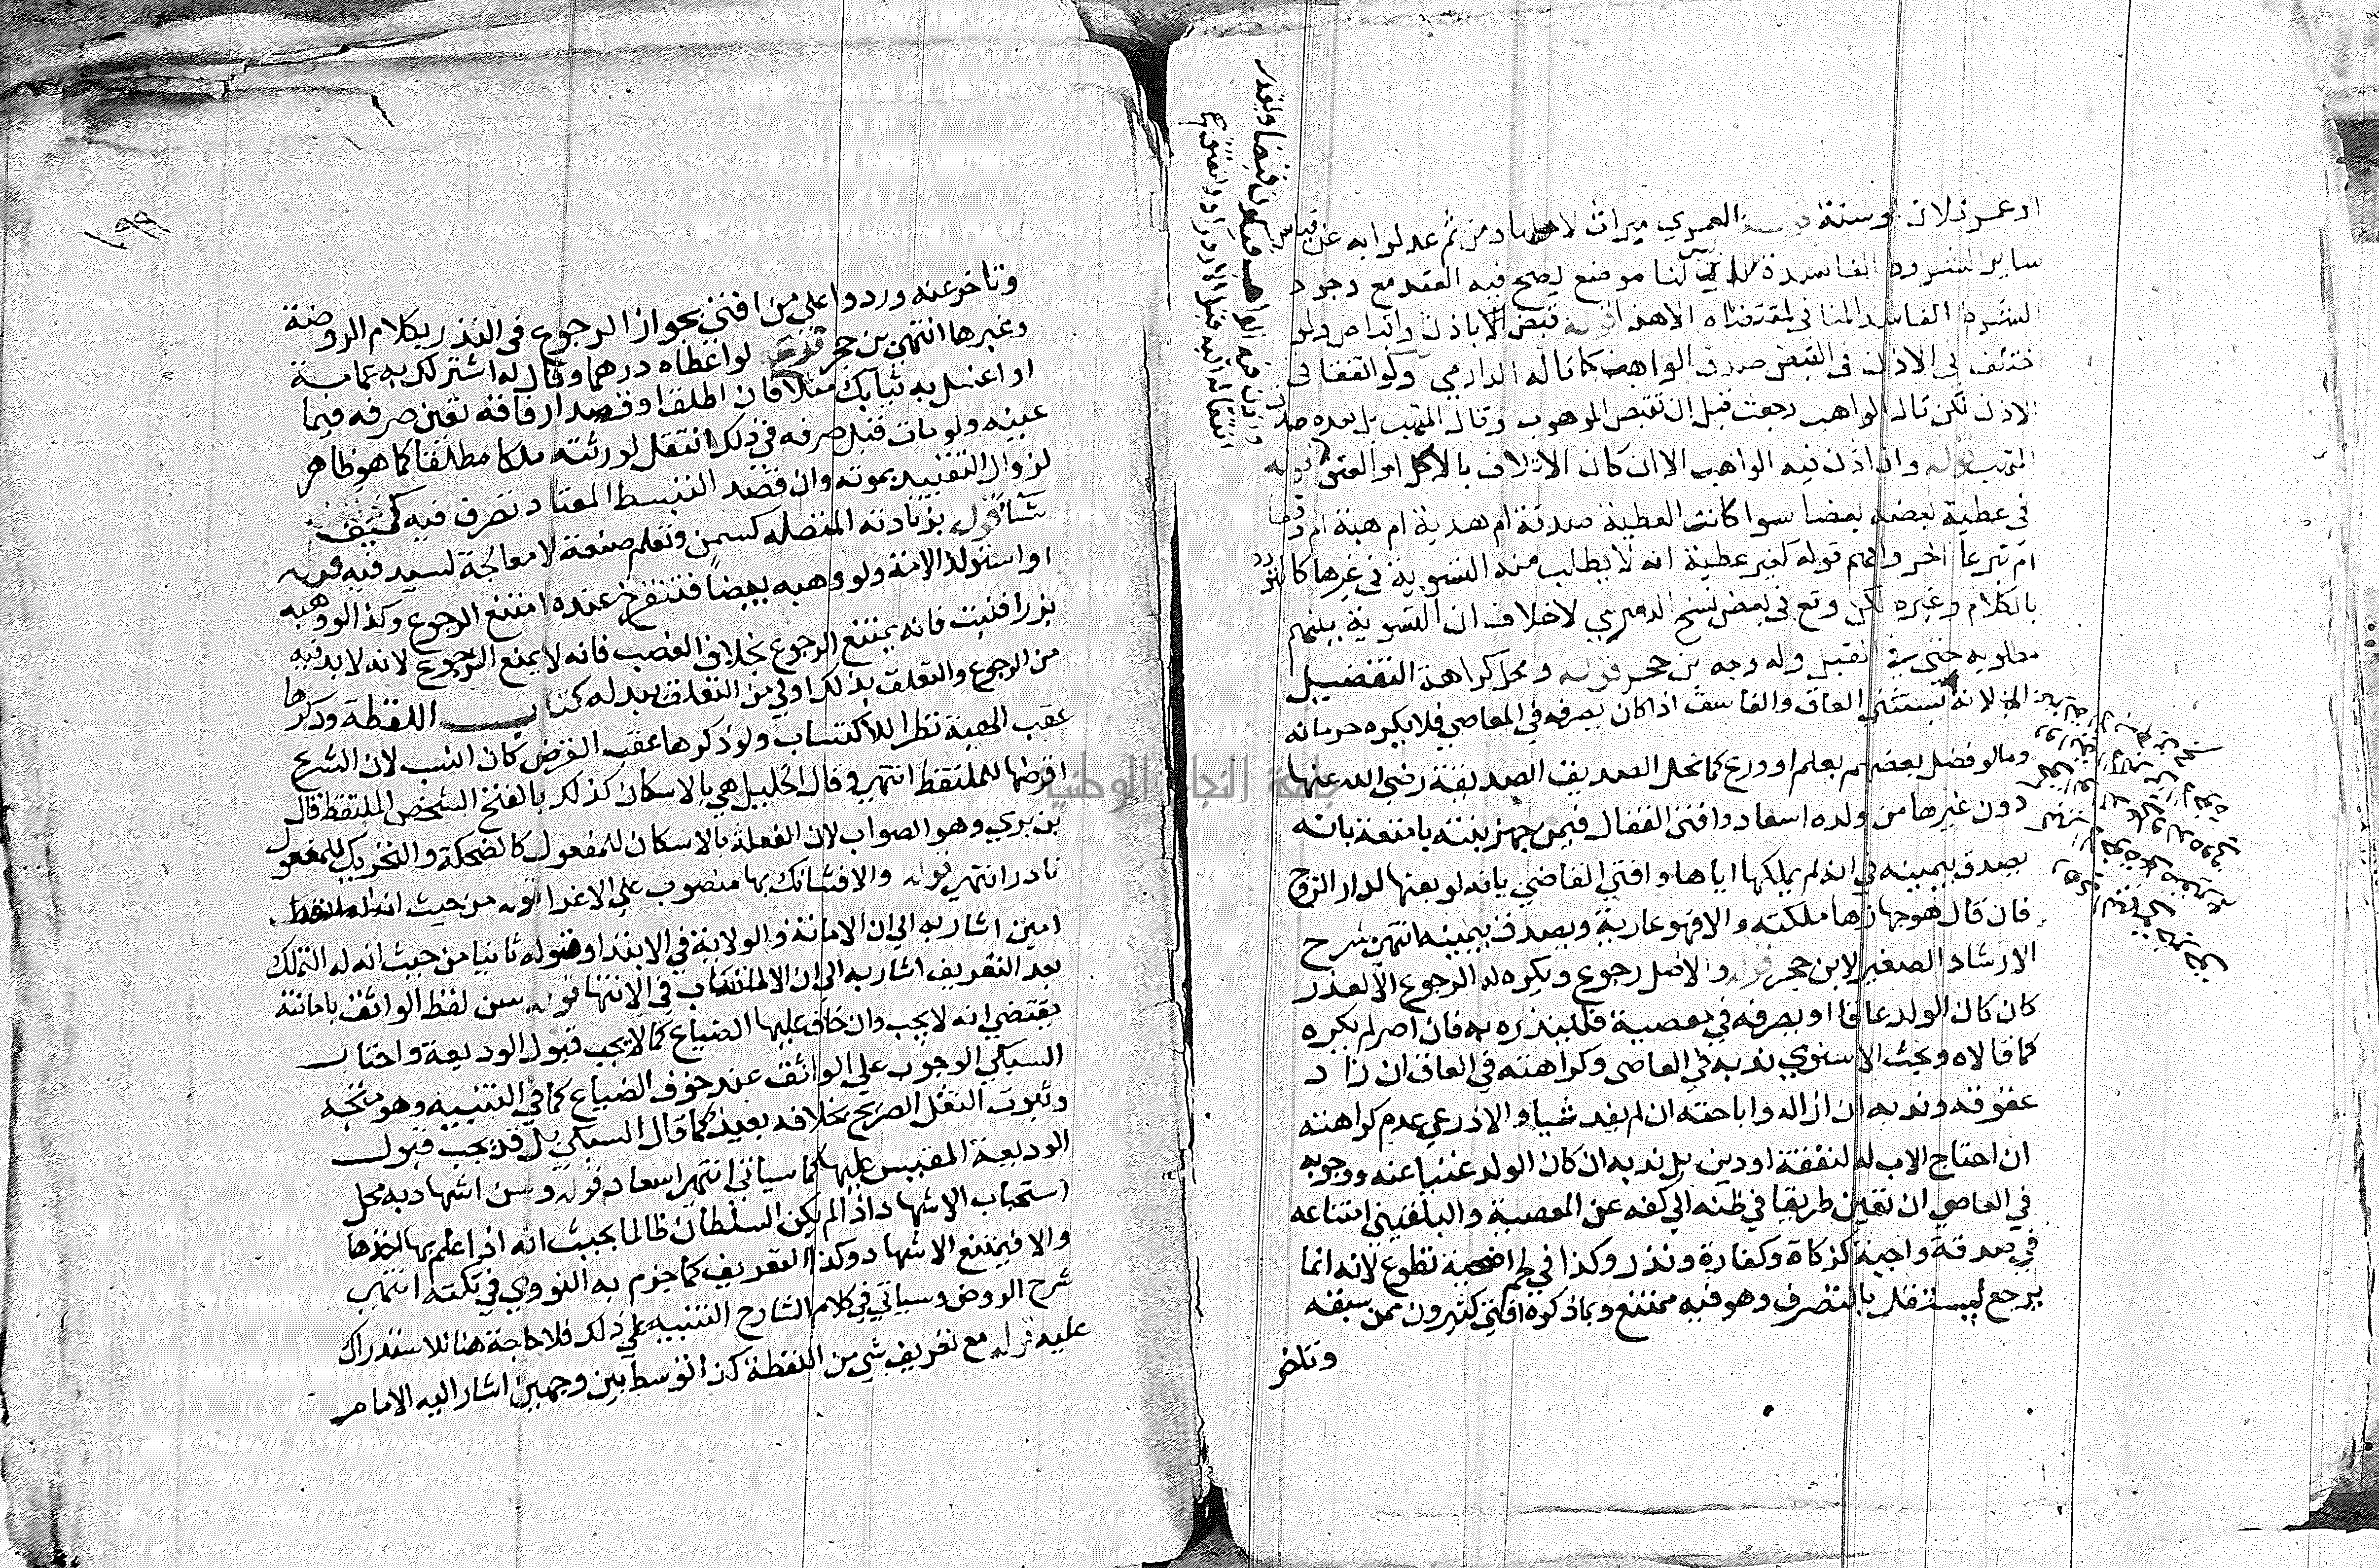 او عمر فلان او سنة قوله العمرى ميراث لاهلها ومن ثم عدلوا به عن قياس
ساير الشروط الفاسدة لنا موضع يصح فيه العقد مع وجود
الشرط الفاسد المنافي لمقتضاه الا هذا قوله قبض الا باذن واقباض ولو
اختلف في الاذن في القبض صدق الواهب كما قاله الدارمي ولو اتفقا في
الاذن لكن قال الواهب رجعت قبل ان تقبض الموهوب وقال المتهب بل بعده صدق
المتهب قوله وان اذن فيه الواهب الا ان كان الاتلاف بالاكل او العتق قوله
في عطية بعضه بعضا سوا كانت العطية صدقة ام هدية ام هبة ام وقفا
ام تبرعا اخر وافهم قوله كغير عطية انه لا يطلب منه التسوية في غيرها كالتودد
بالكلام وغيره لكن وقع في بعض نسخ الدميري لا خلاف ان التسوية بينهم
مطلوبه حتى في القبل وله وجه بن حجر قوله ومحل كراهة التفضيل
لانه يستثني العاق والفاسق اذا كان يصرفه في المعاصي فلا يكره حرمانه
وما لو فضل بعضهم بعلم او ورع كما نحل الصديق الصديقة رضي الله عنها
دون غيرها من ولده اسعاد وافتى القفال فيمن جهز بنته بامتعة بانه
يصدق بيمينه في انه لم يملكها اياها وافتى القاضي بانه لو بعثها لدار الزوج
فان قال هو جهازها ملكته والا فهو عارية ويصدق بيمينه انتهى شرح
الارشاد الصغير لابن حجر قوله والاصل رجوع ويكره له الرجوع الا لعذر
كان كان الولد عاقا او يصرفه في معصية فلينذره به فان اصر لم يكره
كما قالاه وبحث الاسنوي ندبه في العاصي وكراهته في العاق ان زاد
عقوقه وندبه ان ازاله واباحته ان لم يفد شيا والاذرعي عدم كراهته
ان احتاج الاب له لنفقة او دين بل ندبه ان كان الولد غنيا عنه ووجوبه
في العاصي ان تعين طريقا في ظنه الى كفه عن المعصية والبلقيني امتناعه
في صدقة واجبة كزكاة وكفارة ونذر وكذا في لحم اضحية تطوع لانه انما
يرجع ليستقل بالتصرف وهو فيه ممتنع وبما ذكره افتى كثيرون ممن سبقه
وتاخر
١٩٩
وتاخر عنه وردوا على من افتى بجواز الرجوع في النذر بكلام الروضة
وغيرها انتهى بن حجر قوله لو اعطاه درهما وقال له اشتر لك به عمامة
او اغسل به ثيابك مثلا فان اطلق او قصد ارفاقه تعين صرفه فيما
عينه ولو مات قبل صرفه في ذلك انتقل لورثته ملكا مطلقا كما هو ظاهر
لزوال التقييد بموته وان قصد التبسط المعتاد تصرف فيه كيف
شا قوله بزيادته المتصله كسمن وتعلم صنعة لا معالجة لسيد فيه قوله
او استولد الامة ولو وهبه بيضا فتفرخ عنده امتنع الرجوع وكذا لو وهبه
بزرا فنبت فانه يمتنع الرجوع بخلاف الغصب فانه لا يمنع الرجوع لانه لابد فيه
من الرجوع والتعلق بذلك اولى من التعلق ببدله كتاب اللقطة وذكرها
عقب الهبة نظرا للاكتساب ولو ذكرها عقب القرض كان انسب لان الشرع
اقرضها للملتقط انتهى وقال الخليل هي بالاسكان كذلك بالفتح الشخص الملتقط قال
بن بري وهو الصواب لان الفعلة بالاسكان للمفعول كالضحكة والتحريك للمفعول
نادر انتهى قوله والا فشانك بها منصوب على الاغرا قوله من حيث ان الملتقط
امين اشار به الى ان الامانة والولاية في الابتدا وقوله ثانيا من حيث انه له التملك
بعد التعريف اشار به الى ان الاكتساب في الانتها قوله سن لفظ الواثق بامانته
يقتضي انه لا يجب وان خاف عليها الضياع كما لا يجب قبول الوديعة واختار
السبكي الوجوب على الواثق عند خوف الضياع كما في التنبيه وهو متجه
وثبوت النقل الصريح بخلافه بعيد كما قال السبكي بل قد يجب قبول
الوديعة المقيس عليها كما سياتي انتهى اسعاد قوله وسن اشهاد به محل
استحباب الاشهاد اذا لم يكن السلطان ظالما بحيث انه اذا علم بها اخذها
والا فيمتنع الاشهاد وكذا التعريف كما جزم به النووي في نكته انتهى
شرح الروض وسياتي في كلام الشارح التنبيه على ذلك فلا حاجة هنا للاستدراك
عليه قوله مع تعريف شي من اللقطة كذا توسط بين وجهين اشار اليه الامام
جامعة النجاح الوطنية